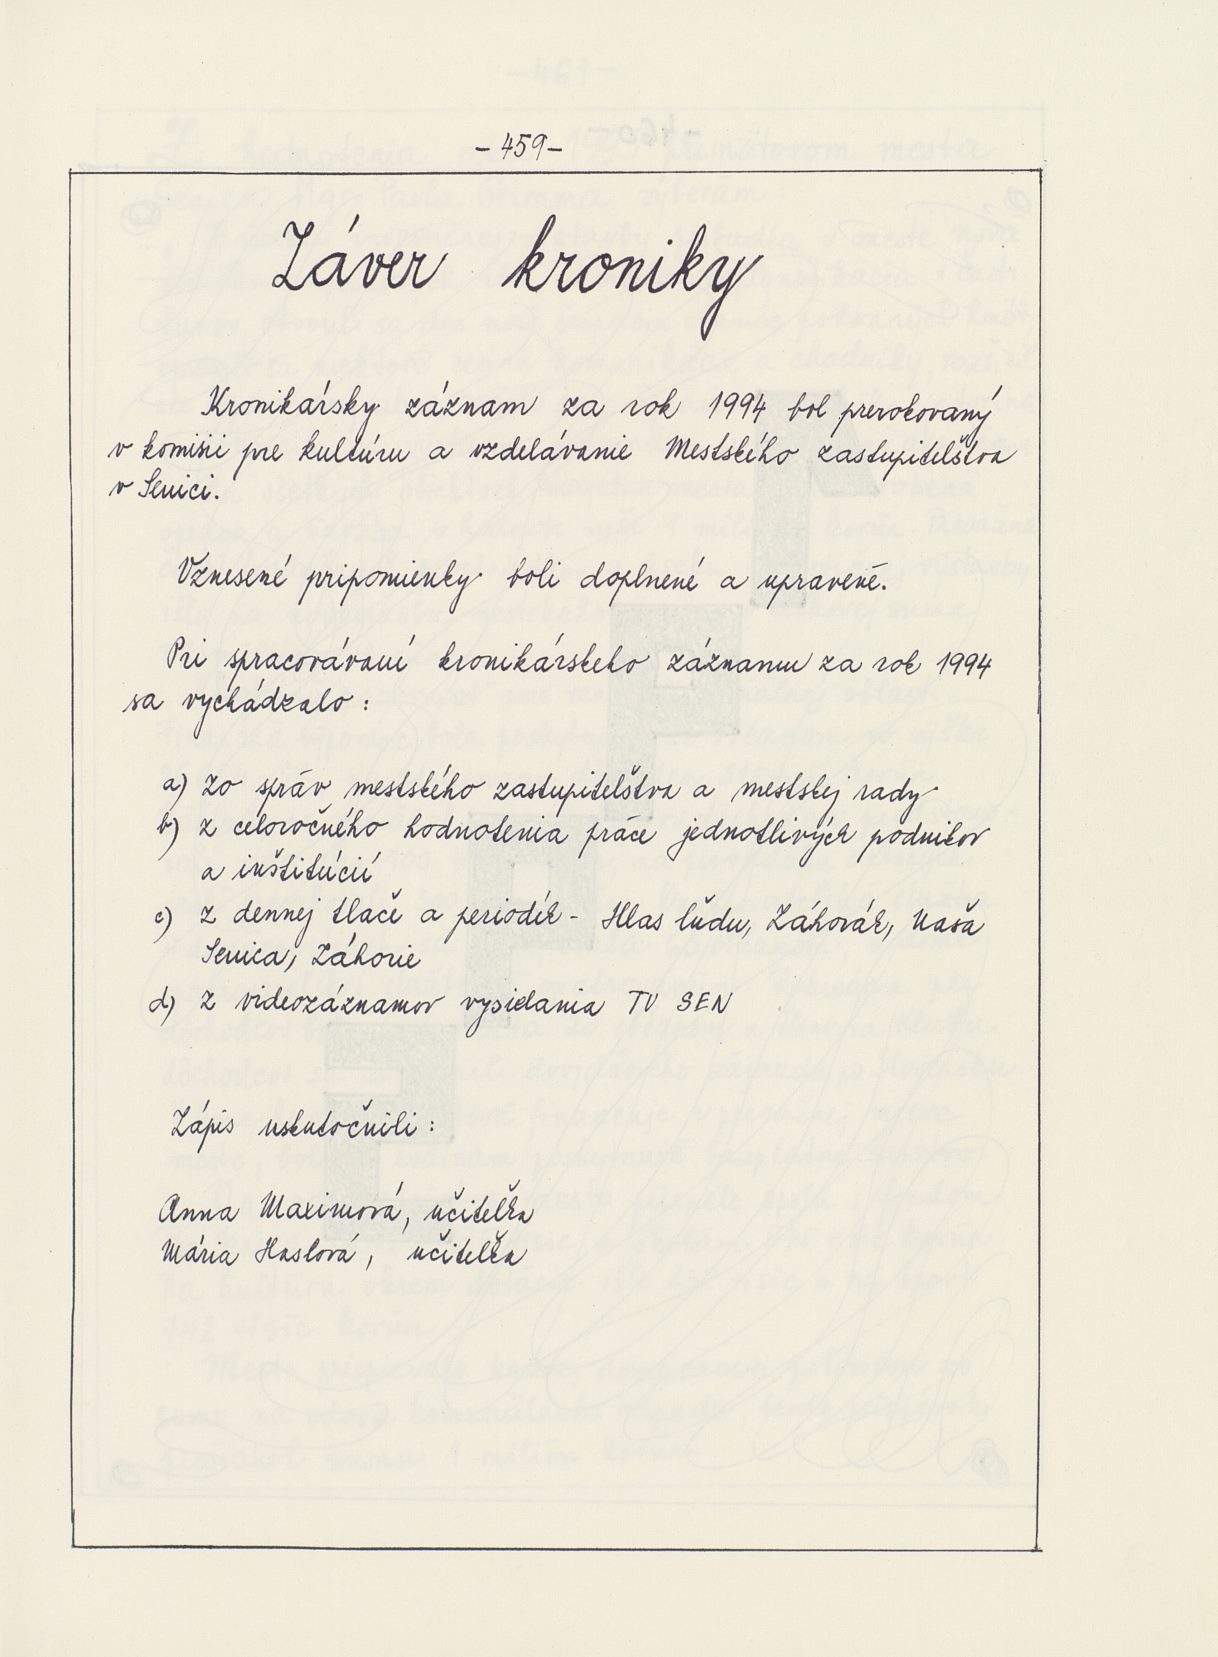 - 459 -
Záver kroniky
Kronikársky záznam za rok 1994 bol prerokovaný
v komisii pre kultúru a vzdelávanie Mestského zastupiteľstva
v Senici.
Vznesené pripomienky boli doplnené a upravené.
Pri spracovávaní kronikárskeho záznamu za rok 1994
sa vychádzalo :
a) zo správ mestského zastupiteľstva a mestskej rady
b) z celoročného hodnotenia práce jednotlivých podnikov
a inštitúcií
c) z dennej tlače a periodík - Hlas ľudu, Záhorák, Naša
Senica, Záhorie
d) z videozáznamov vysielania TV SEN
Zápis uskutočnili :
Anna Maximová, učiteľka
Mária Haslová, učiteľka